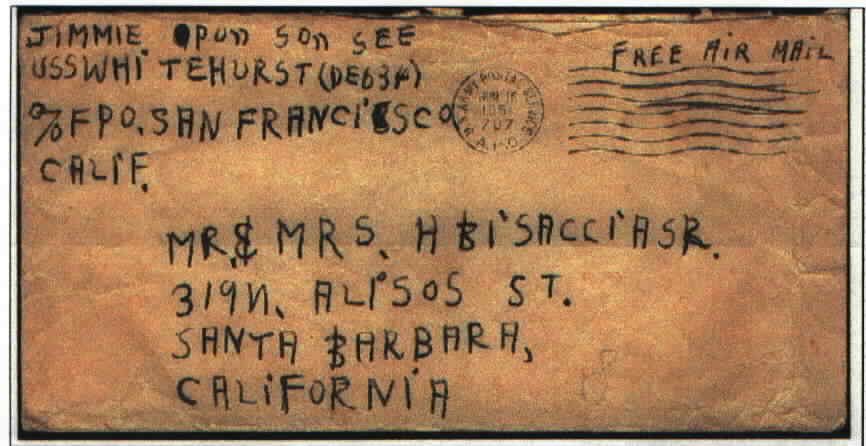 JIMMIE. OPUN SON SEE
USSWHITEHURST (DE634)
℅ FPO. SAN FRANCISCO
CALIF.
FREE AIR MAIL
U.S. ARMY POSTAL SERVICE
A.P.O.
707
MR. & MRS. H BISACCIA SR.
319 N. ALISOS ST.
SANTA BARBARA,
CALIFORNIA